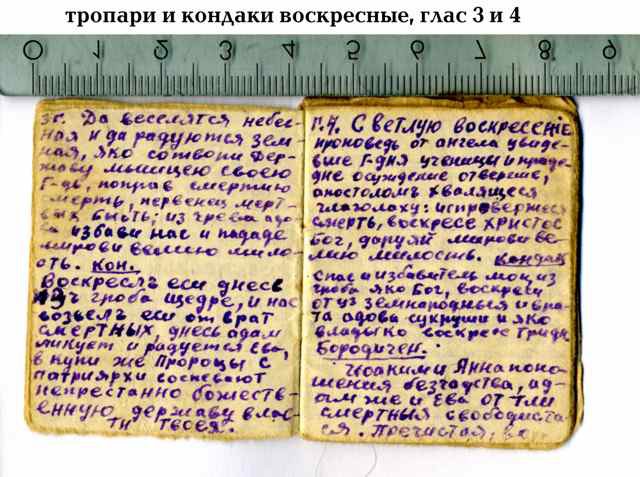 тропари и кондаки воскресные, глас 3 и 4
0 1 2 3 4 5 6 7 8 9
3г. Да веселятся небес-
ная и да радуются зем-
ная, яко сотвори дер-
жаву мышцею своею
Г-дь, поправ смертию
смерть, первенец мерт-
вых бысть; из чрева адо-
ва избави нас и пададе
мирови велию мило-
сть. Кон.
Воскреслъ еси днесь
изъ гроба щедре, и нас
возвелъ еси от врат
смертных, днесь адам
ликует и радуется Ева,
вкупи же Пророцы с
патриярхи соспевают
непрестанно божеств-
енную державу влас-
ти твоея.
Г.4. Светлую воскресение
проповедь от ангела увиде-
вше Г-дня ученицы и праде-
дне осуждение отверше,
апостоломъ хвалящеся
глаголаху: испровержеся
смерть, воскресе христос
Бог, даруяй мирови ве-
лию милость. Кондак
Спас и избавитель мои, из
гроба яко Бог, воскреси
от уз земнародныя и вра-
та адова сукруши и яко
владыко воскресе Тридн
Бородичен.
Иоаким и Анна поно-
шения безчадства, ад-
ам же и Ева от тли
смертныя свободиста-
ся. Пречистая,